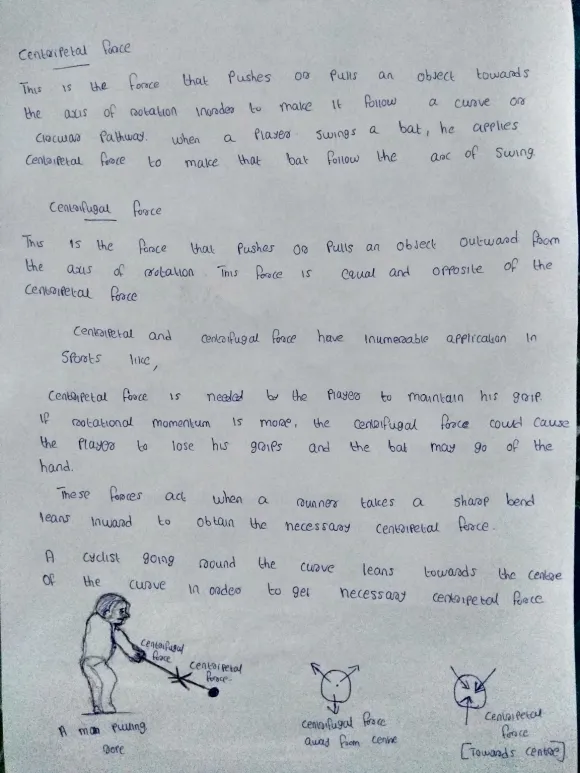 Centripetal force
This is the force that Pushes or Pulls an object towards
the axis of rotation inorder to make it follow a curve or
Circular Pathway. When a Player swings a bat, he applies
Centripetal force to make that bat follow the arc of swing.
Centrifugal force
This is the force that Pushes or Pulls an object outward from
the axis of rotation. This force is equal and opposite of the
Centripetal force
Centripetal and centrifugal force have inumerable application in
Sports like,
Centripetal force is needed by the Player to maintain his grip.
If rotational momentum is more, the centrifugal force could cause
the Player to lose his grips and the bat may go of the
hand.
These forces act when a runner takes a sharp bend
leans inward to obtain the necessary centripetal force.
A cyclist going round the curve leans towards the centre
of the curve in order to get necessary centripetal force
Centrifugal
force
Centripetal
force.
A man pulling
Centrifugal force
away from centre
Centripetal
force
[Towards centre]